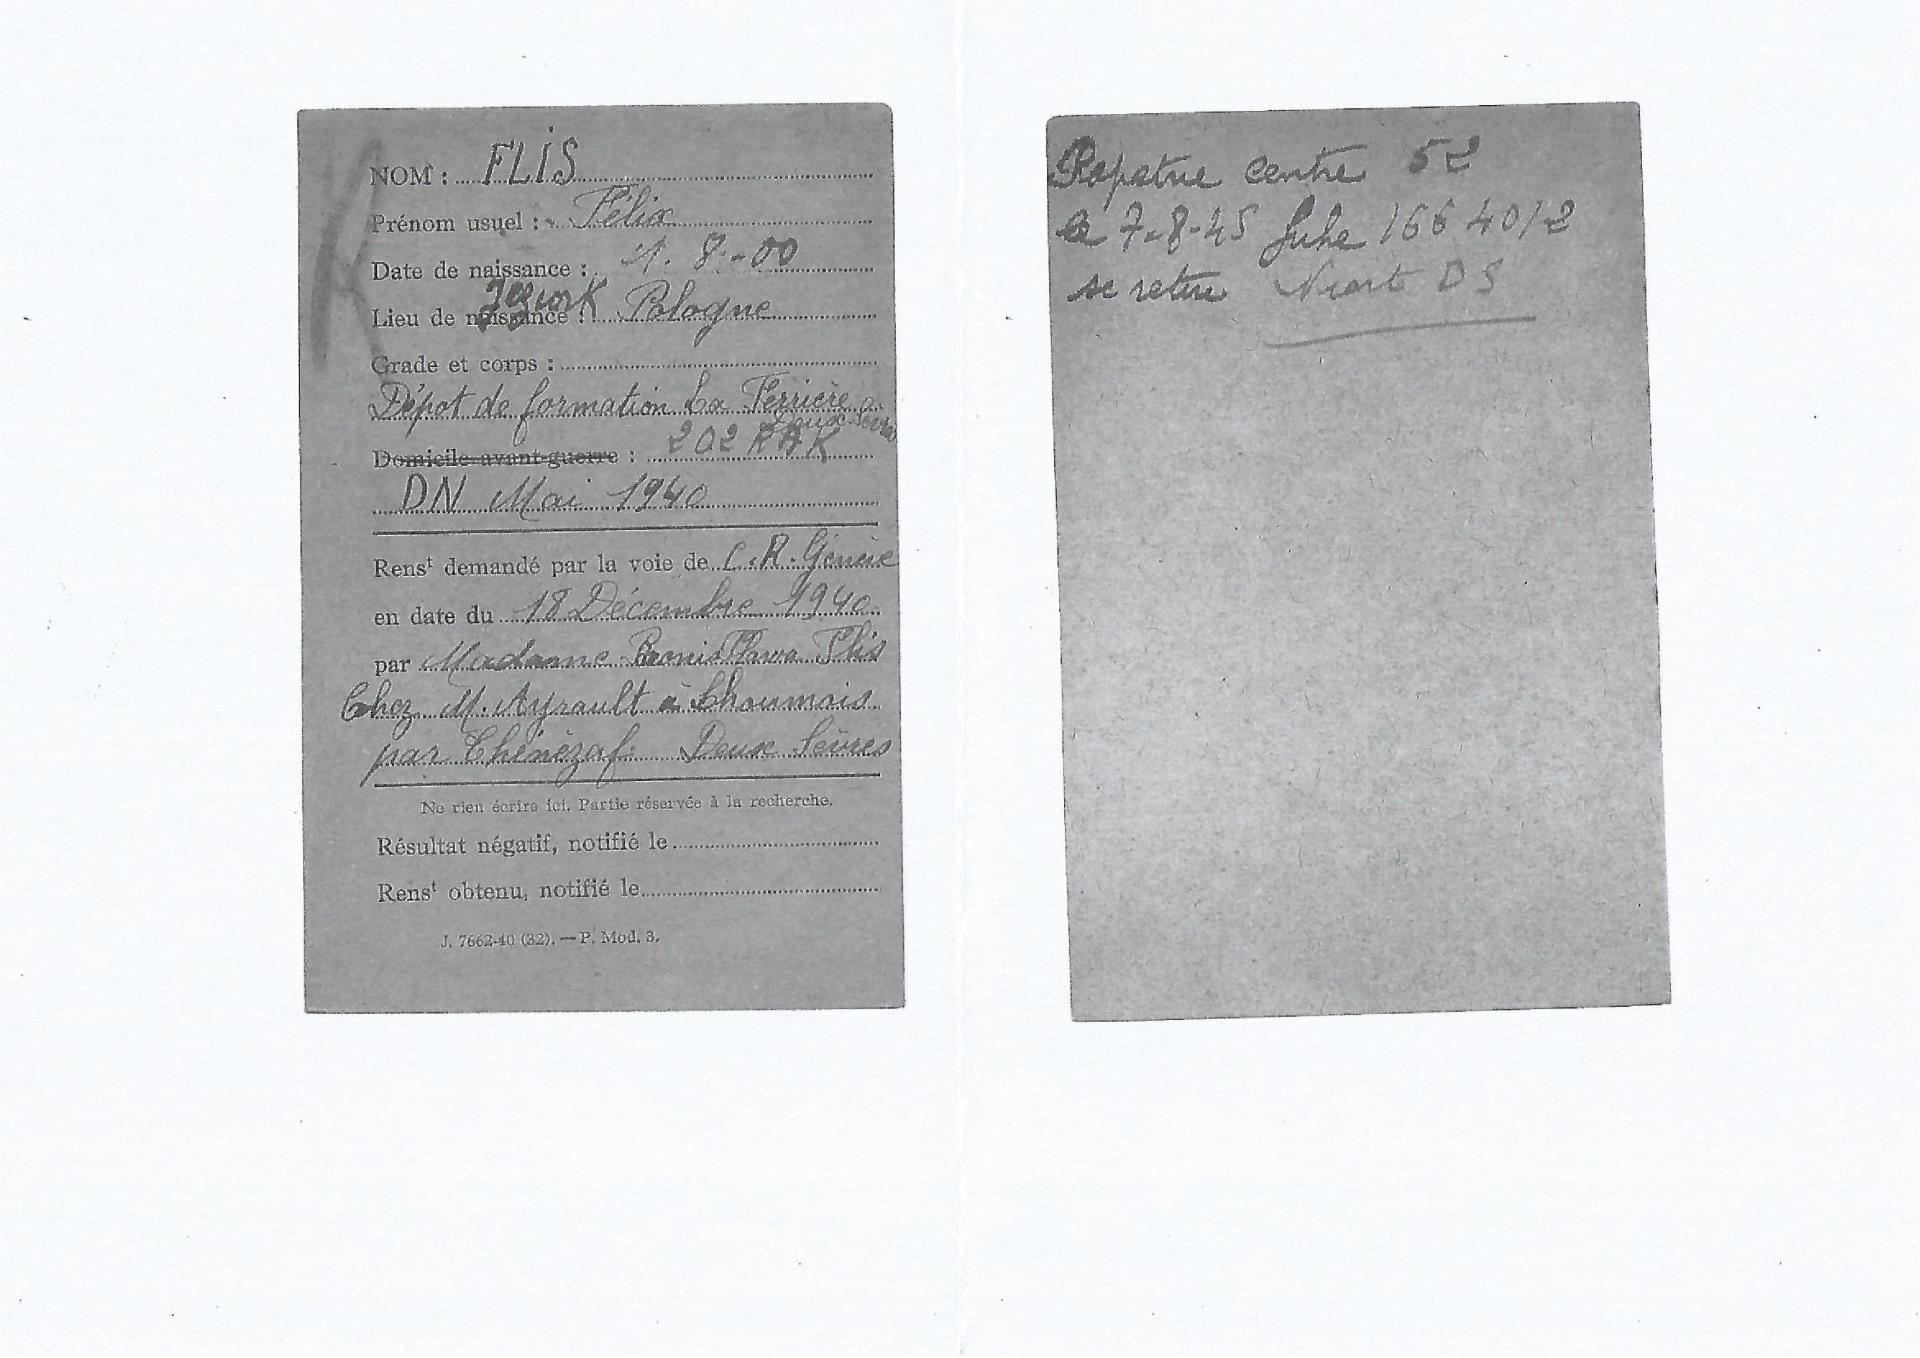 NOM : FLIS
Prénom usuel : Félix
Date de naissance : 1. 8.-00
Lieu de naissance : Pologne
Grade et corps :
Dépot de formation La Ferrière
Deux Sèvres
Domicile avant-guerre : 202
DN Mai 1940
Rensᵗ demandé par la voie de C.R. Genève
en date du 18 Décembre 1940
par Madame Bronislawa Flis
Chez M. Ayrault à
par Thénezaf Deux Sèvres
Ne rien écrire ici. Partie réservée à la recherche.
Résultat négatif, notifié le
Rensᵗ obtenu, notifié le
J. 7662-40 (32). — P. Mod. 3.
Rapatrie centre 52
le 7-8-45 fiche 166 4012
se retire Niort DS